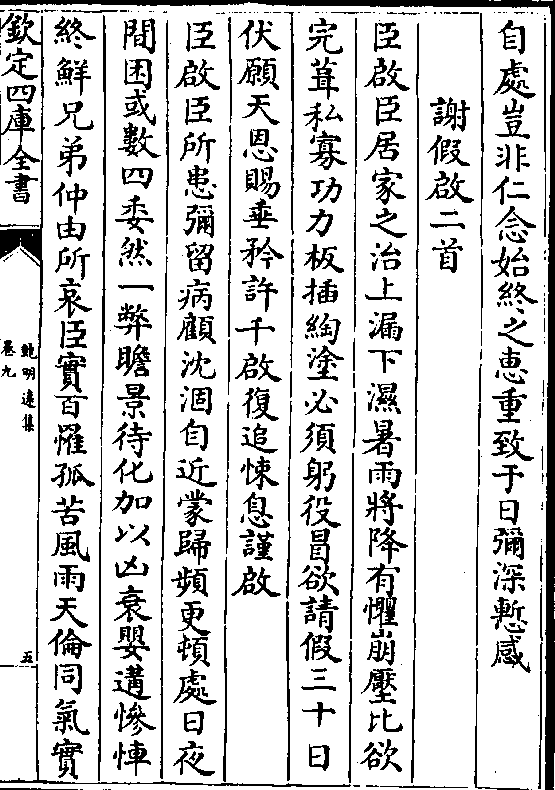 自處豈非仁念始終之恵重致于日彌深慙感
謝假啟二首
臣啟臣居家之治上漏下濕暑雨將降有懼崩壓比欲
完葺私寡功力板插綯塗必須躬役冒欲請假三十日
伏願天恩賜垂矜許千啟復追悚息謹啟
臣啟臣所患彌留病顧沈涸自近蒙歸頻更頓處日夜
間困或數四委然一弊瞻景待化加以凶衰嬰遘慘悼
終鮮兄弟仲由所哀臣實百罹孤苦風雨天倫同氣實
欽定四庫全書
鮑明逺集
卷九
五